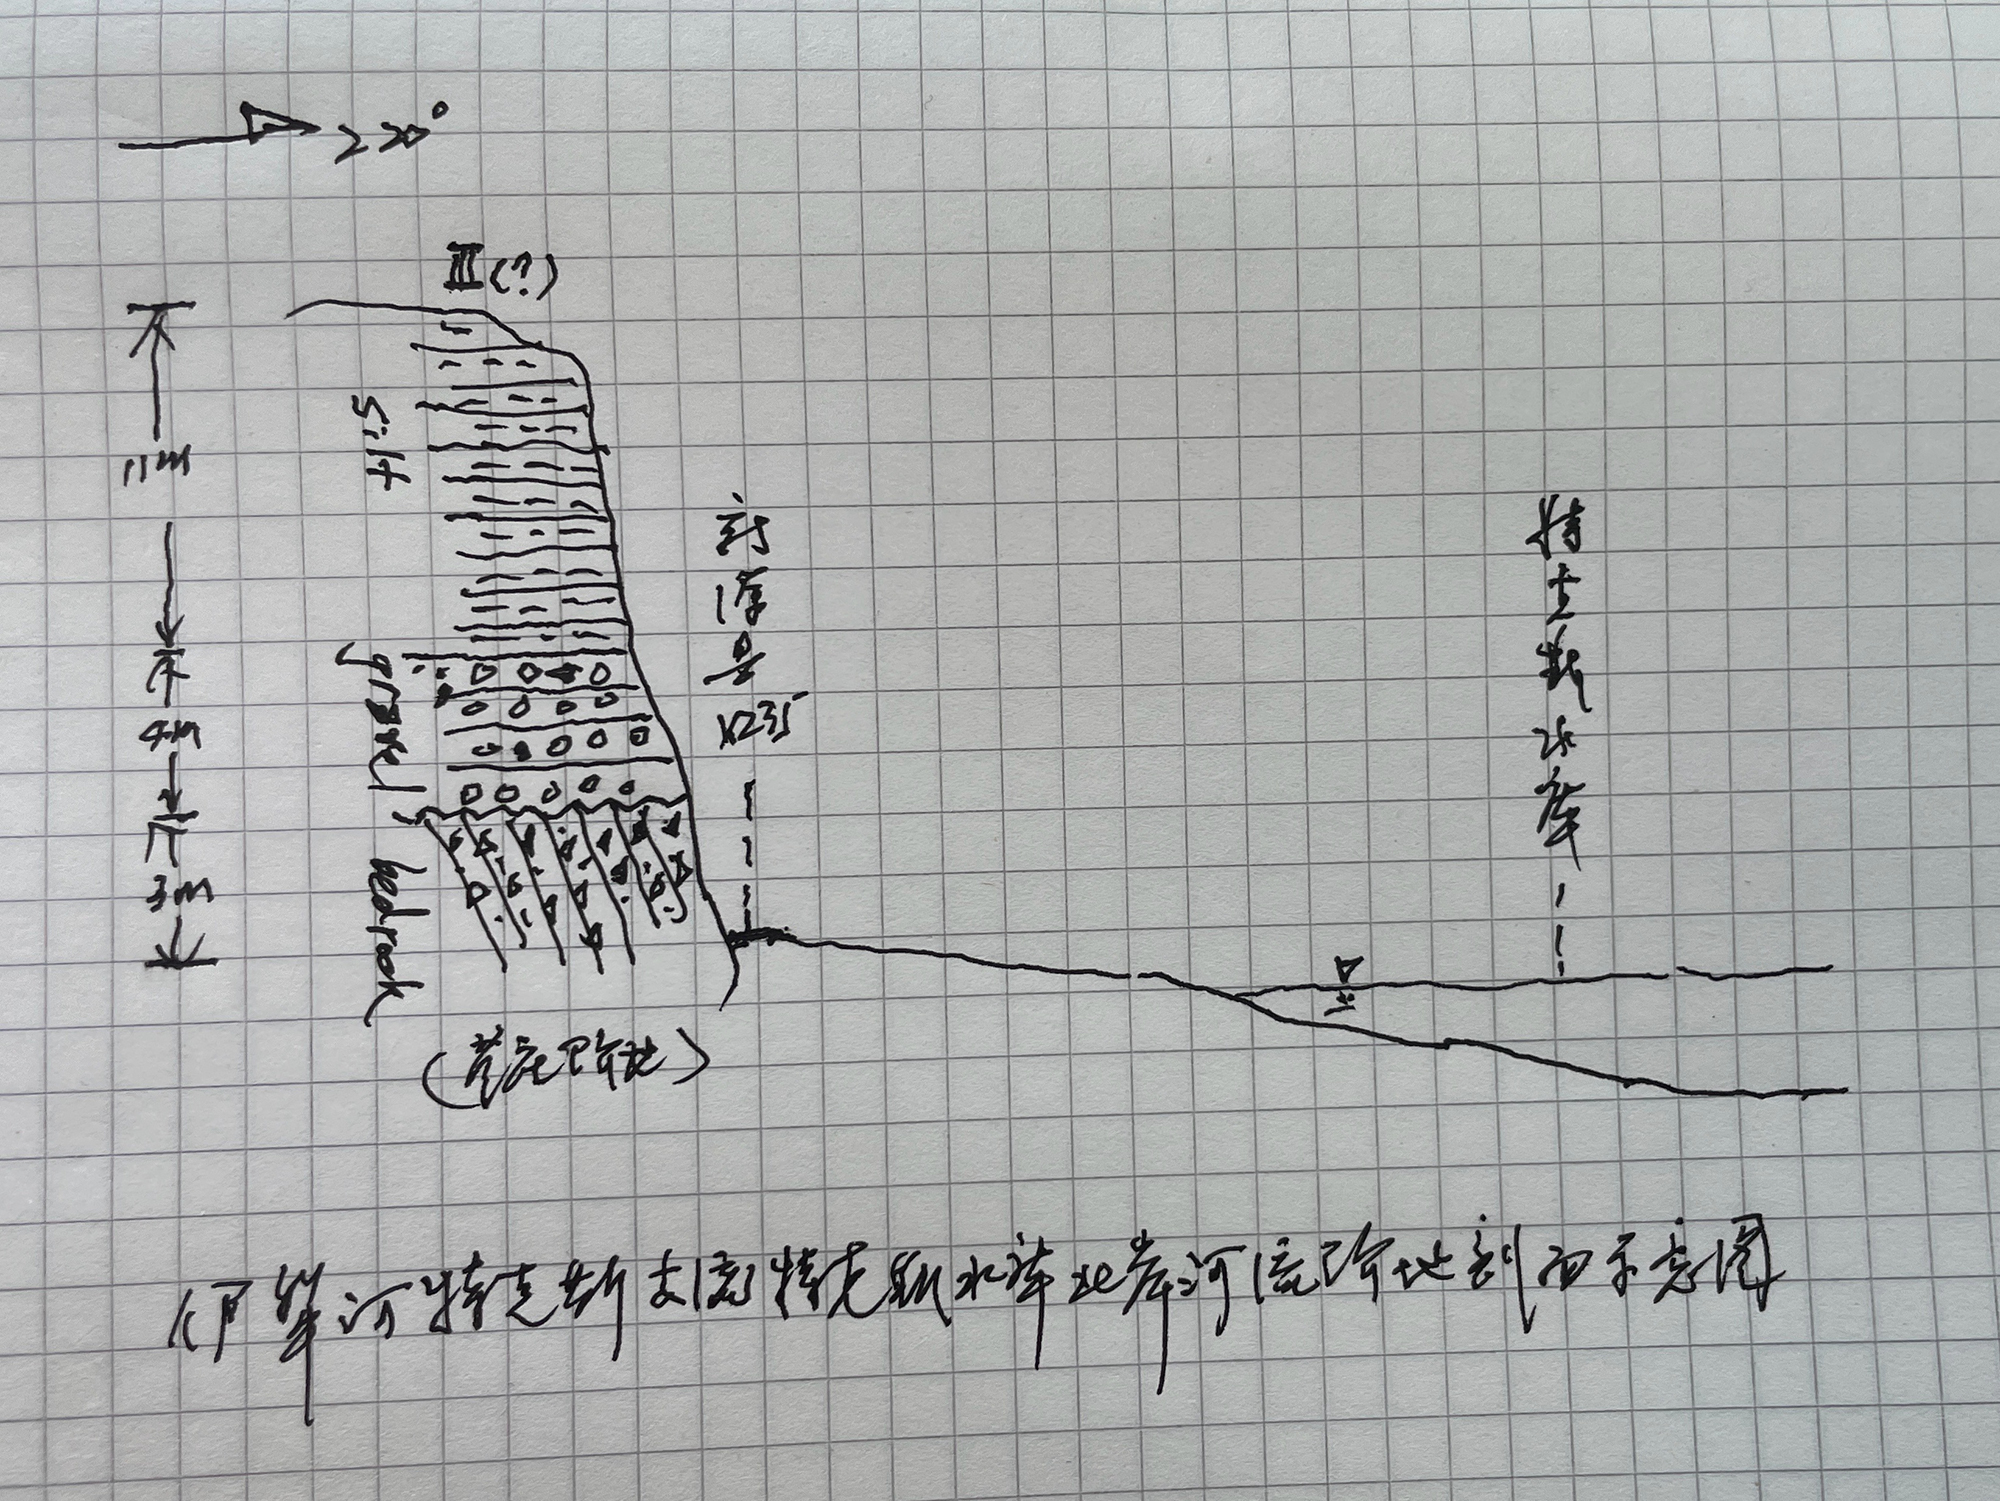 220°
III(?)
11m
silt
4m
gravel
3m
bedrock
X235
特克斯水库
(基座阶地)
伊犁河特克斯支流特克斯水库北岸河流阶地剖面示意图